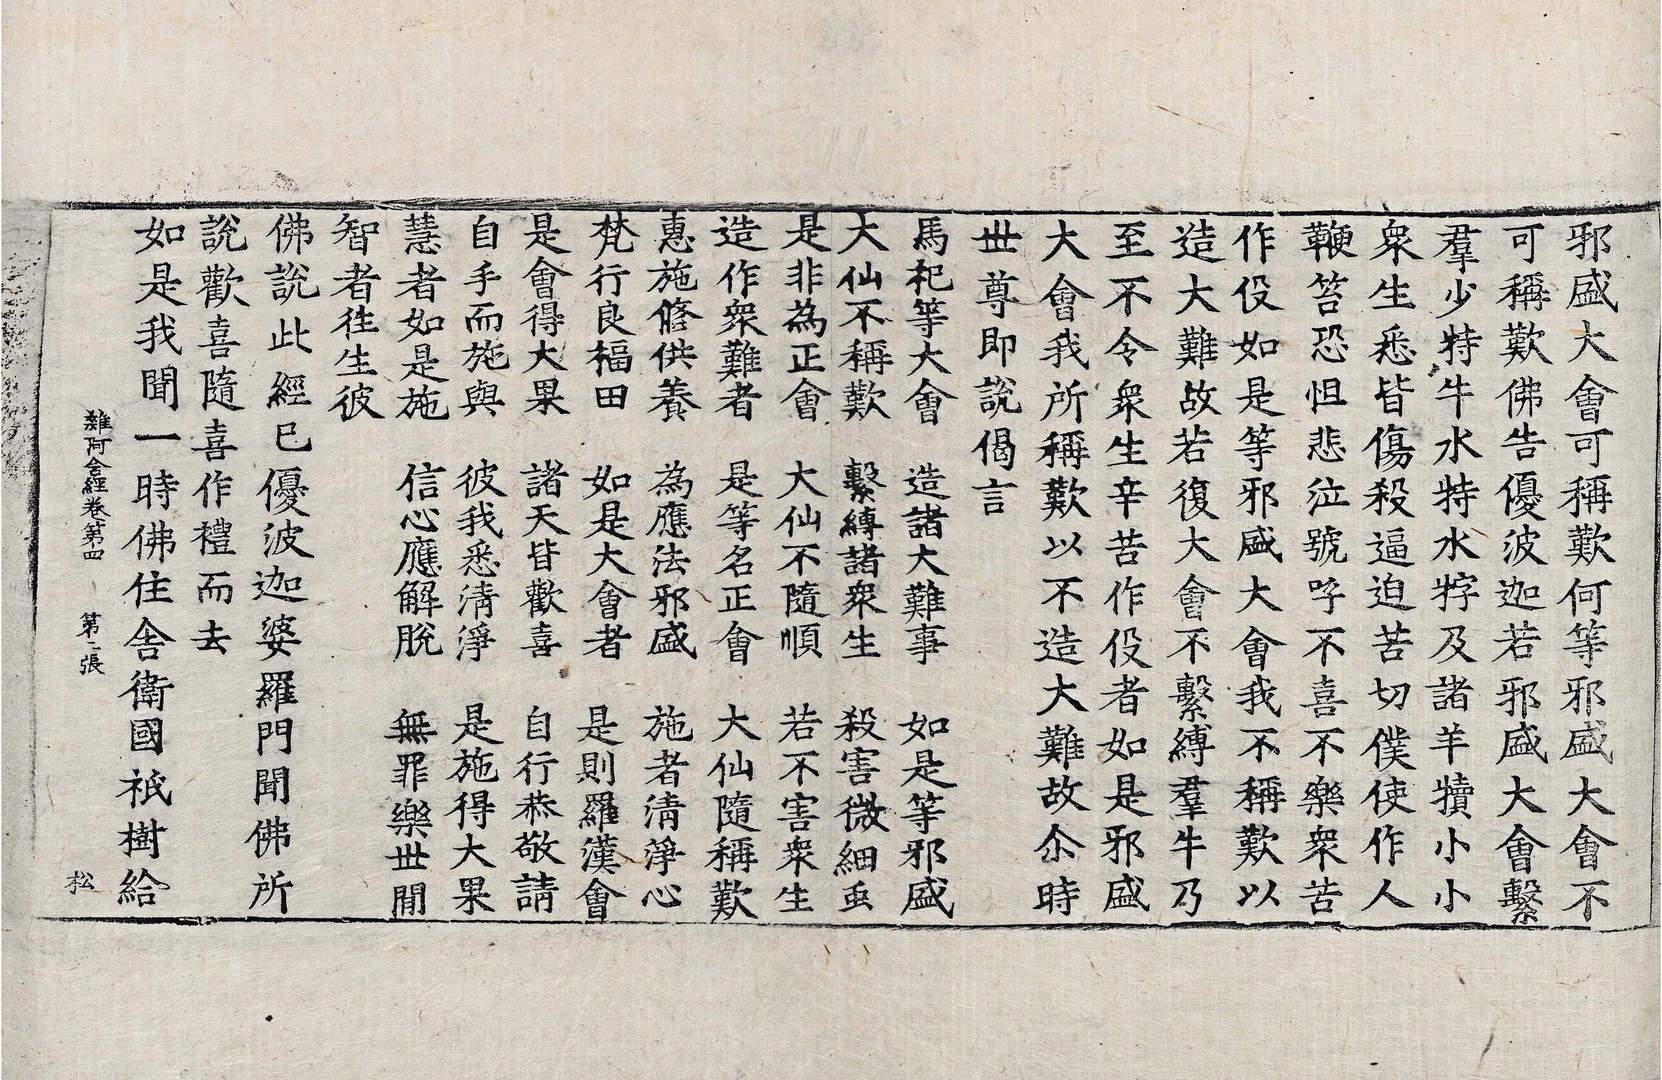 邪盛大會可稱歎何等邪盛大會不
可稱歎佛告優波迦若邪盛大會繫
羣少特牛水特水牸及諸羊犢小小
衆生悉皆傷殺逼迫苦切僕使作人
鞭笞恐怛悲泣號呼不喜不樂衆苦
作役如是等邪盛大會我不稱歎以
造大難故若復大會不繫縛羣牛乃
至不令衆生辛苦作役者如是邪盛
大會我所稱歎以不造大難故尒時
世尊即說偈言
馬祀等大會　造諸大難事　如是等邪盛
大仙不稱歎　繫縛諸衆生　殺害微細虫
是非為正會　大仙不隨順　若不害衆生
造作衆難者　是等名正會　大仙隨稱歎
惠施修供養　為應法邪盛　施者清淨心
梵行良福田　如是大會者　是則羅漢會
是會得大果　諸天皆歡喜　自行恭敬請
自手而施與　彼我悉清淨　是施得大果
慧者如是施　信心應解脫　無罪樂世間
智者徃生彼
佛說此經已優波迦婆羅門聞佛所
說歡喜隨喜作禮而去
如是我聞一時佛住舍衛國祇樹給
雜阿含經卷第四　第二張　松